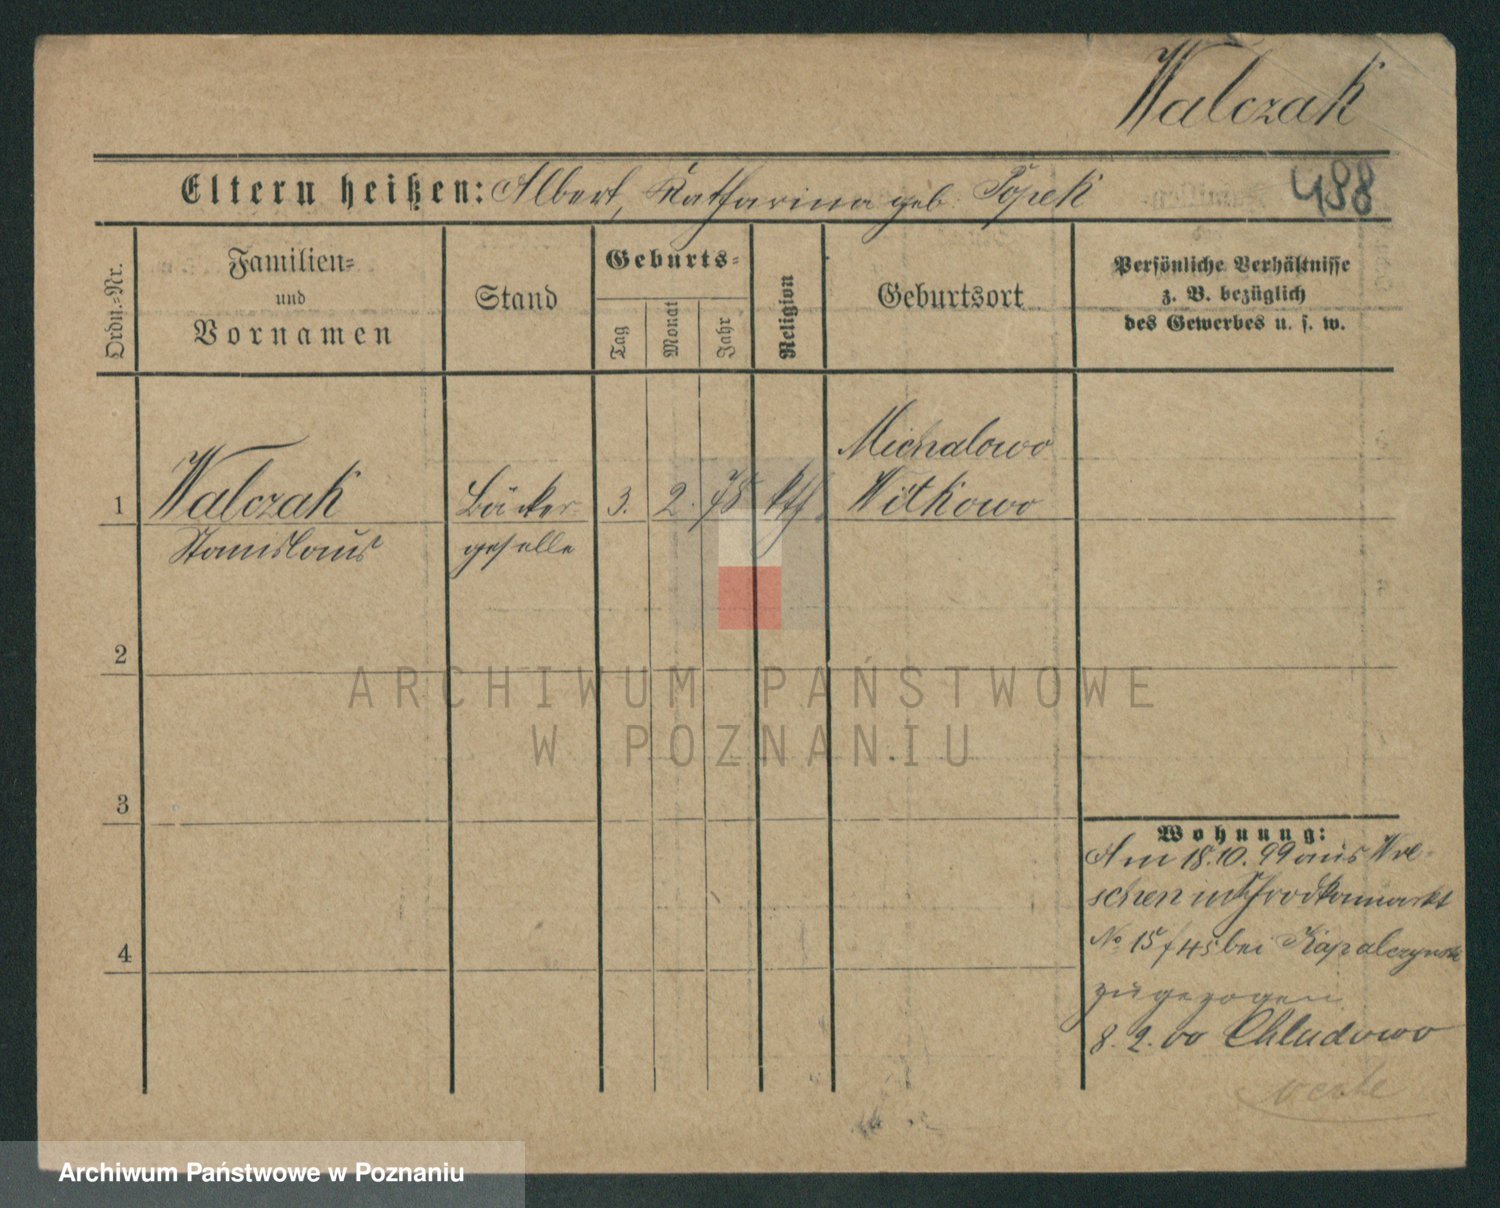 Walczak
Eltern heißen: Albert, Katharina geb. Topek
488
Ordn.-Nr.
Familien-
und
Vornamen
Stand
Geburts-
Tag
Monat
Jahr
Religion
Geburtsort
Persönliche Verhältnisse
z. B. bezüglich
des Gewerbes u. s. w.
Michalowo
1 Walczak Bäcker 3. 2. 78 kth Witkowo
Stanislaus geselle
2
ARCHIWUM PAŃSTWOWE
W POZNANIU
3
Wohnung:
Am 18.10.99 aus Wre-
schen in Schrodkamarkt
4
No 15 / 45 bei
zugezogen
8.2.00 Chludowo
Archiwum Państwowe w Poznaniu